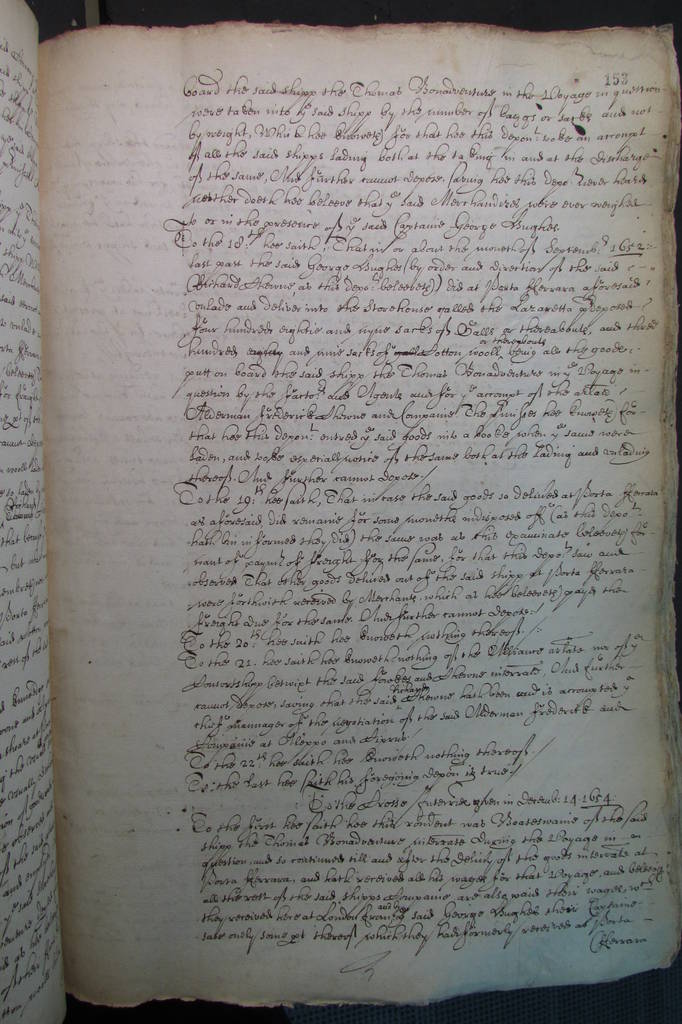 153
board the said shipp the Thomas Bonadventure in the Voyage in question
were taken into ye said shipp by the number of baggs or sacks and not
by weight, Which hee knoweth for that hee this depont tooke an accompt
of all the said shipps lading both at the taking in and at the discharge
of the same, And further cannot depose. saving hee this depot never heard
neither doeth hee beleeve that ye said Merchandizes were ever weighed
to or in the presence of ye said Captaine George Hughes.
To the 18th hee saith, That in or about the moneth of Septembr 1652
last past the said George Hughes (by order and direction of the said
(Richard Thorne as this depot beleeveth)) did at Porta Ferrara aforesaid
unlade and deliver into the storehouse called the Lazaretta predeposed
four hundred eightie and nyne sacks of Galls or thereabouts, and three
hundred and nine sacks of Cotton wooll or thereabouts being all the goods
putt on board the said shipp the Thomas Bonadventure in ye Voyage in
question by the factors and Agents and for ye accompt of the arlate
Alderman Frederick Thorne and Companie. The Premisses hee knoweth for
that hee this depont entred ye said goods into a booke when ye same were
laden, and tooke especiall notice of the same both at the lading and unlading
thereof. And further cannot depose.
To the 19th hee saith, That in case the said goods so delivered at Porta Ferrara
as aforesaid, did remaine for some moneths undisposed off (as this depot
hath bin informed they did) the same was as this Examinate beleeveth for
want of paymt of freight for the same, for that this depot saw and
observed That other goods delivered out of the said shipp at Porta Ferrara
were forthwith received by Merchants which as hee beleeveth payd the
freight due for the same. And further cannot depose.
To the 20th hee saith hee knoweth nothing thereof.
To the 21. hee saith hee knoweth nothing of the arlate nor of ye
Consortshipp betwixt the said and Thorne interrate, And further
cannot depose, saving that the said Richard Thorne hath been and is accompted ye
chief manager of the negotiation of the said Alderman Frederick and
Companie at Aleppo and Ciprus
To the 22th hee saith hee knoweth nothing thereof.
To the last hee saith his foregoing depon is true
To the Crosse Interries given in Decemb: 14 1654
To the first hee saith hee this rondent was Boateswaine of the said
shipp the Thomas Bonadventure interrate During the Voyage in
question and so continued till and after the delivery of the goods interrate at
Porta Ferrara, and hath received all his wages for that Voyage, and
all the rest of the said shipps Companie are also paid their wages, wch
they received here at London from ye said George Hughes their Captaine
save onely some pt thereof which they had formerly received at Porta
Ferrara